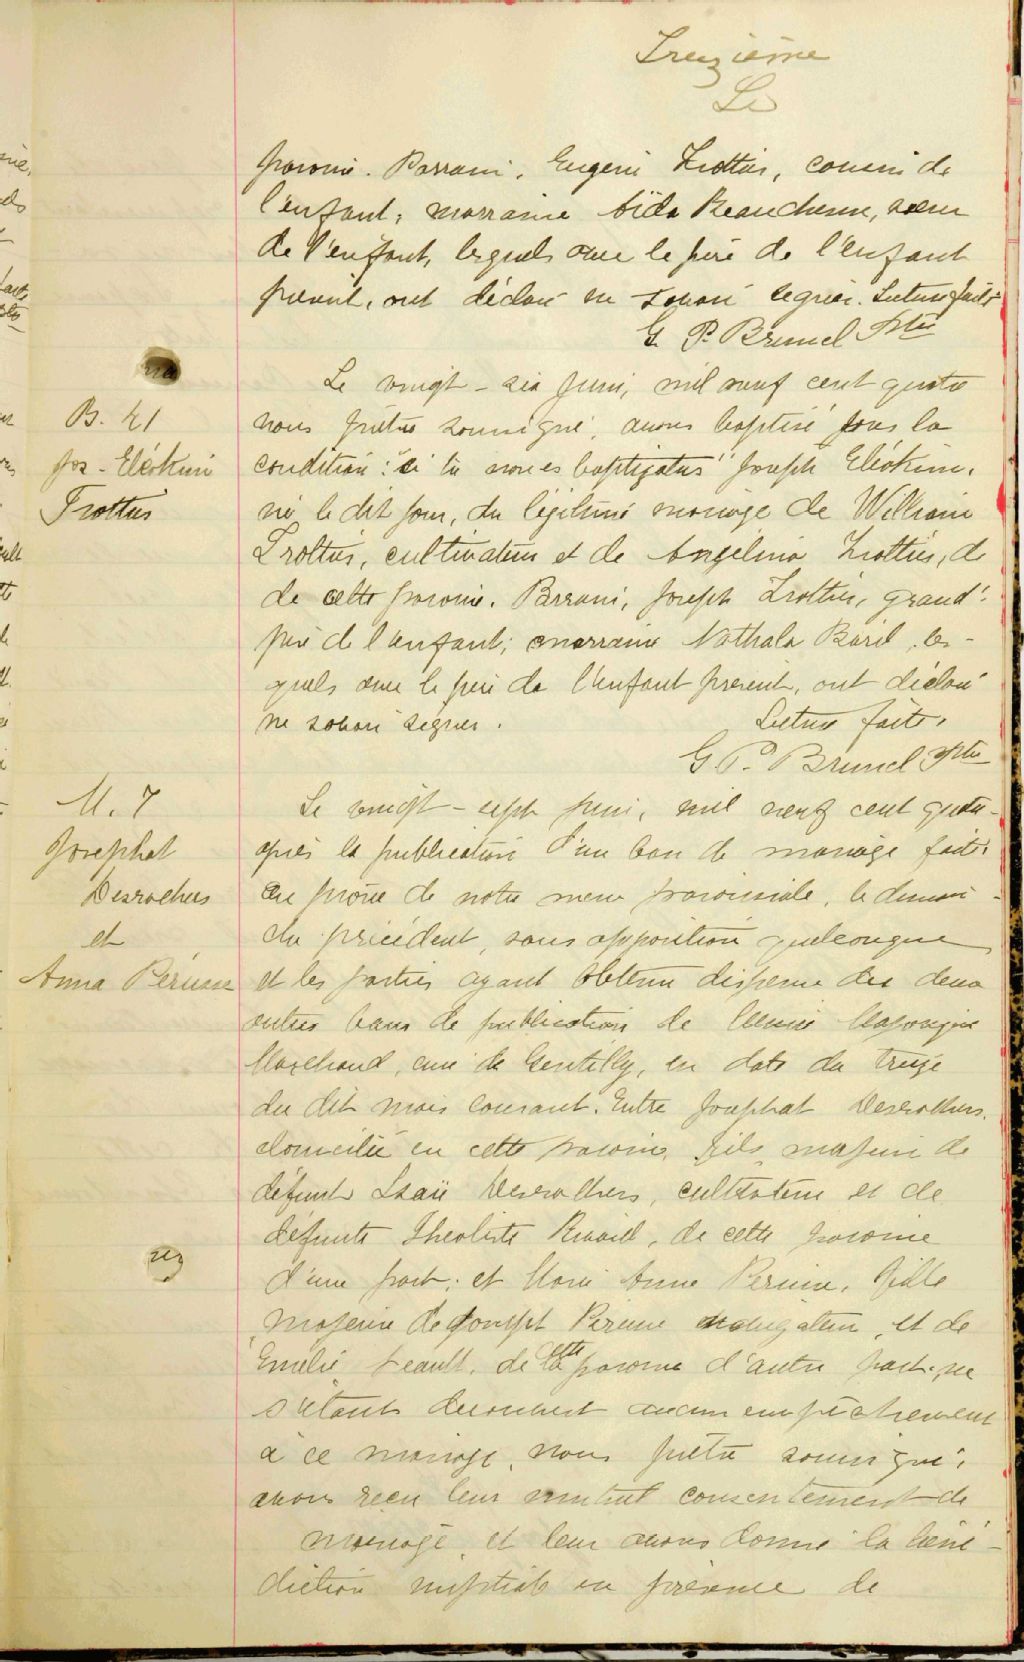 Treizième
paroisse. Parrain, Eugène Trottier, cousin de
l'enfant; marraine Aïda Beauchesne, sœur
de l'enfant, lesquels avec le père de l'enfant
présent, ont déclaré ne savoir signer. Lecture faite.
G. P. Brunel Ptre
Le vingt-six juin, mil neuf cent quatre
B. 21
nous prêtre soussigné, avons baptisé sous la
Jos-Eliakim
condition: "si tu non es baptizatus" Joseph Eliakim,
Trottier
né le dit jour, du légitime mariage de William
Trottier, cultivateur et de Angelina Trottier, de
de cette paroisse. Parrain, Joseph Trottier, grand'-
père de l'enfant; marraine Nathala Baril, les-
quels avec le père de l'enfant présent, ont déclaré
ne savoir signer. Lecture faite.
G. P. Brunel Ptre
M. 7
Le vingt-sept juin, mil neuf cent quatre
Josephat
après la publication d'un ban de mariage faite
Desrochers
au prône de notre messe paroissiale, le diman-
et
che précédent, sans opposition quelconque
Anna Pérusse
et les parties ayant obtenu dispense des deux
autres bans de publication de
Marchand, curé de Gentilly, en date du treize
du dit mois courant. Entre Josephat Desrochers,
domicilié en cette paroisse, fils majeur de
défunt Isaïe Desrochers, cultivateur et de
défunte Théotiste Rivard, de cette paroisse
d'une part; et Marie Anne Pérusse, fille
majeure de Joseph Pérusse navigateur, et de
Emélie, de cette paroisse d'autre part, ne
s'étant découvert aucun empêchement
à ce mariage, nous prêtre soussigné,
avons reçu leur mutuel consentement de
mariage et leur avons donné la béné-
diction nuptiale en présence de